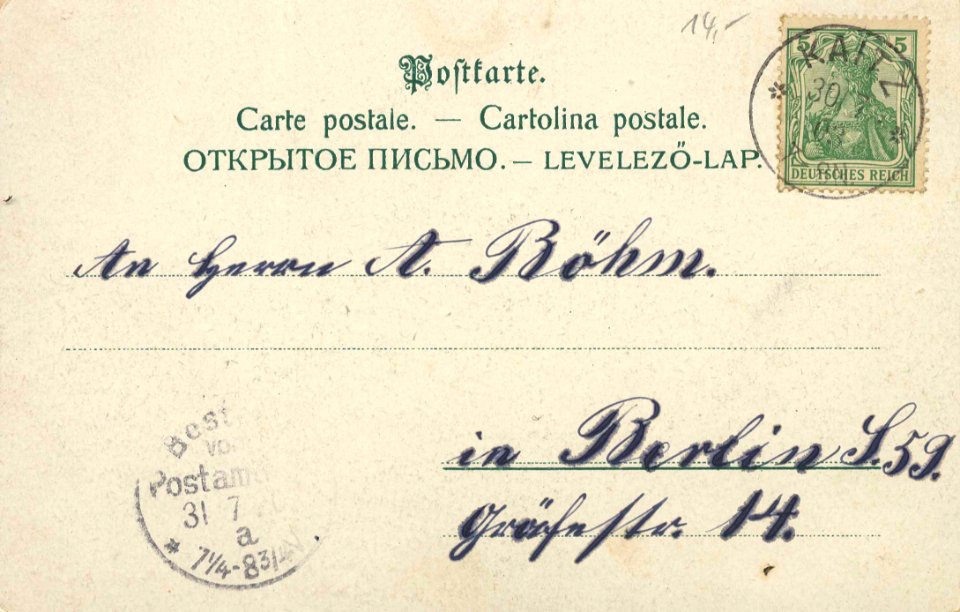 14,-
Postkarte.
Carte postale. — Cartolina postale.
ОТКРЫТОЕ ПИСЬМО. — LEVELEZŐ-LAP.
5 5
KAITZ
30. 7.
DEUTSCHES REICH
An Herrn A. Böhm.
in Berlin S. 59.
Gräfestr. 14.
Best
vo
Postam
31 7
a
7¼-8¾N